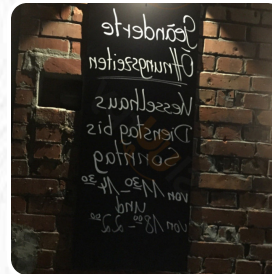 Geänderte
Öffnungszeiten
Kesselhaus
Dienstag bis
Sonntag
von 11³⁰ - 14³⁰
und
von 18⁰⁰ - 22³⁰